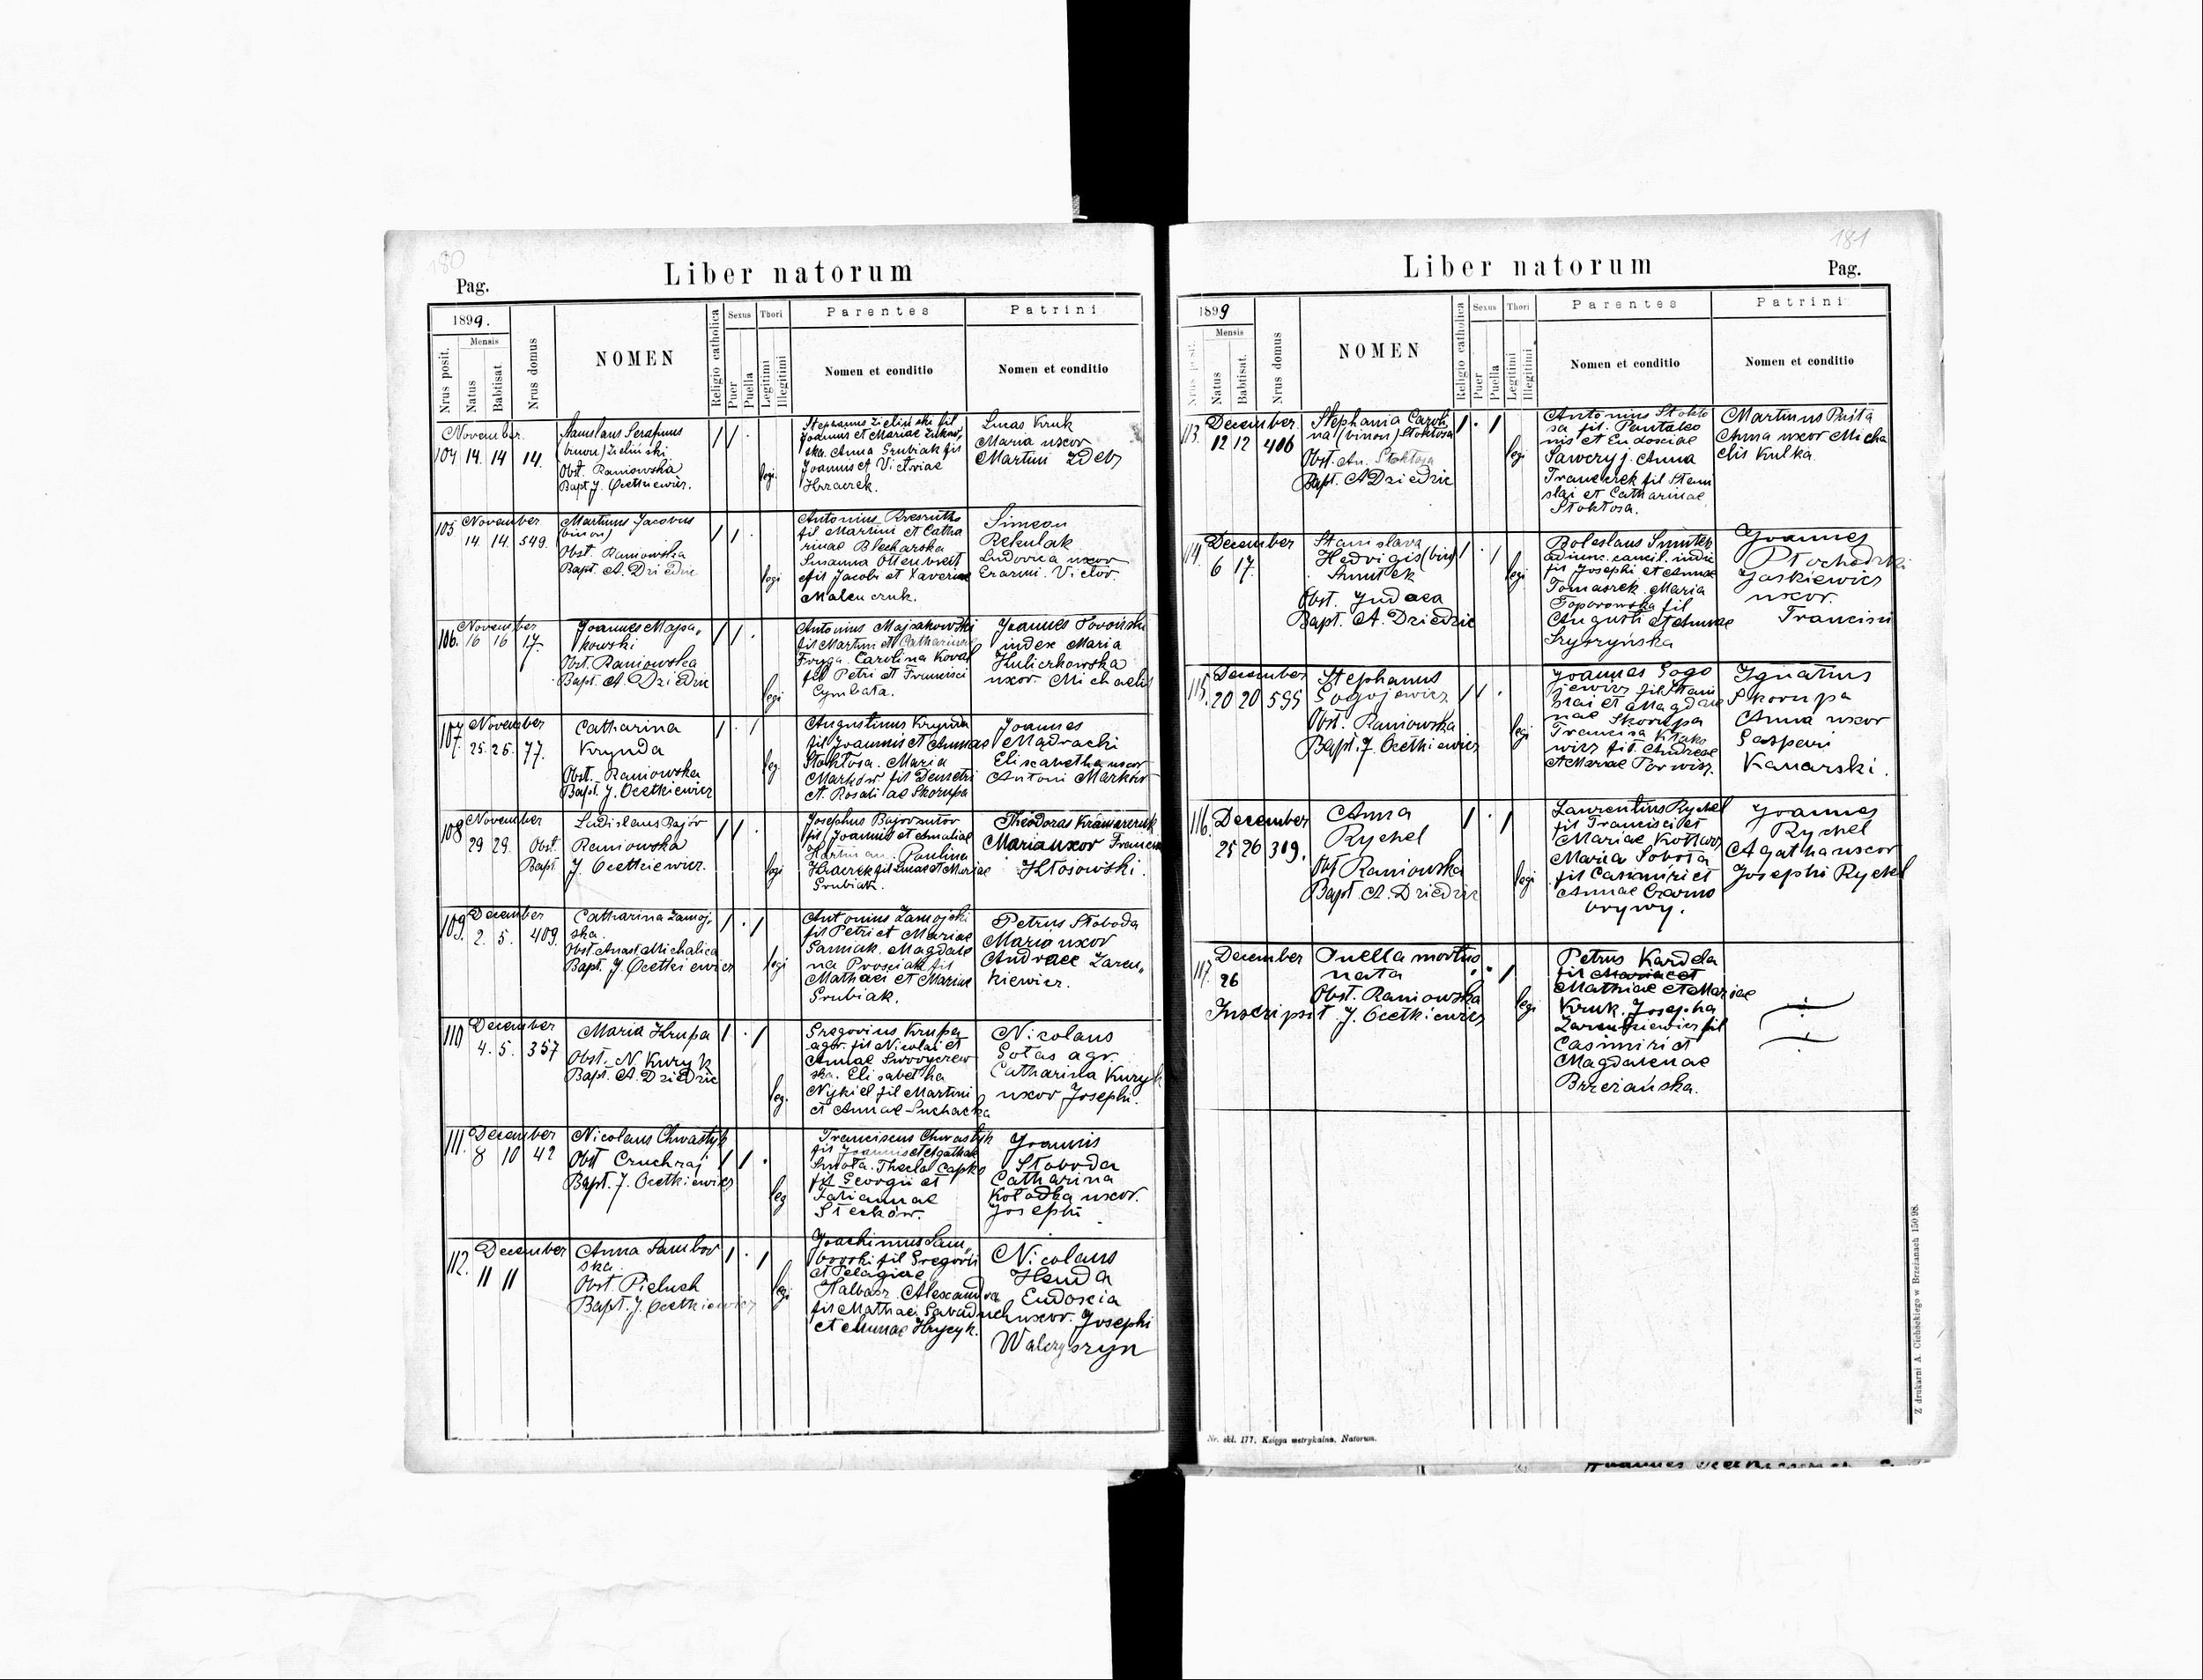 180
Pag.
Liber natorum
1899.
Nrus posit.
Mensis
Natus
Babtisat.
Nrus domus
NOMEN
Religio catholica
Sexus
Puer
Puella
Thori
Legitimi
Illegitimi
Parentes
Nomen et conditio
Patrini
Nomen et conditio
November
104 14. 14 14.
Stanislaus Serafinus
(binom) Zieliński
Obst. Raniowska
Bapt J. Ocetkiewicz.
legi
Stephanus Zieliński fil
Joannis et Mariae
ska. Anna Grubiak fil
Joannis et Victoriae
Hraczek.
Lucas Kruk
Maria uxor
Martini Zdeb
105 November
14. 14. 549.
Martinus Jacobus
(binom)
Obst. Raniowska
Bapt. A. Dziedzic
legi
Antonius
fil Martini et Catha
rinae Blecharska
Susanna Ottenbreit
fil Jacobi et Xaveriae
Malenczuk.
Simeon
Rekulak
Ludovica uxor
Erasmi. Victor.
106. November
16 16 17.
Joannes Maja„
kowski
Obst. Raniowska
Bapt. A. Dziedzic
legi
Antonius Majakowski
fil Martini et Catharinae
Fryga. Carolina Koval
fil Petri et Francisci
Cymbala.
Joannes
index Maria
Kuliczkowska
uxor Michaelis
107. November
25. 26. 77.
Catharina
Krynda
Obst. Raniowska
Bapt. J. Ocetkiewicz
leg.
Augustinus Krynda
fil Joannis et Annae
Stokłosa. Maria
Marków fil Demetri
et Rosaliae Skorupa
Joannes
Mądracki
Elisabetha uxor
Antoni Marków
108 November
29 29.
Ladislaus Bajór
Obst. Raniowska
Bapt J. Ocetkiewicz.
legi
Josephus Bajor sutor
fil Joannis et Amaliae
Hartman. Paulina
Hraczek fil Lucae et Mariae
Grubiak.
Theodoras Kramarczuk
Maria uxor Francisci
Kłosowski.
109. December
2. 5. 409.
Catharina Zamoj„
ska.
Obst. Anast. Michalica
Bapt. J. Ocetkiewicz
legi
Antonius Zamojski
fil Petri et Mariae
Samiak. Magdale
na Prosciak fil
Mathaei et Mariae
Grubiak.
Petrus Słoboda
Maria uxor
Andreae Zarem„
kiewicz.
110 December
4. 5. 357
Maria Krupa
Obst. N. Kuryk
Bapt. A. Dziedzic
leg.
Gregorius Krupa
agr. fil Nicolai et
Annae
ska. Elisabetha
Nykiel fil Martini
et Annae Suchacka
Nicolaus
Gołas agr.
Catharina Kuryk
uxor Josephi.
111. December
8 10 42
Nicolaus Chwastyk
Obst Cruchraj
Bapt. J. Ocetkiewicz
leg
Franciscus Chwastyk
fil Joannis et Agathae
Smoła. Thecla Capko
fil Georgii et
Tatiannae
Stecków.
Joannis
Słoboda
Catharina
Kołodka uxor.
Josephi
112. December
11 11
Anna Sambor
ska.
Obst Pieluch
Bapt. J. Ocetkiewicz
legi
Joachimus Sam„
borski fil Gregorii
et Pelagiae
Halbasz. Alexandra
fil Mathaei Gabaduch
et Annae Hrycyk.
Nicolaus
Henda
Eudoxia
uxor. Josephi
Walczyszyn
181
Liber natorum
Pag.
1899
Nrus posit.
Mensis
Natus
Babtisat.
Nrus domus
NOMEN
Religio catholica
Sexus
Puer
Puella
Thori
Legitimi
Illegitimi
Parentes
Nomen et conditio
Patrini
Nomen et conditio
113. December
12 12 406
Stephania Caroli„
na (binom) Stokłosa
Obst. An. Stokłosa
Bapt. A Dziedzic
legi
Antonius Stokło
sa fil. Pantaleo
nis et Eudosciae
Sawczyj. Anna
Franczek fil Stani
slai et Catharinae
Stokłosa.
Martinus Pusta
Anna uxor Micha
elis Kulka
114. December
6 17.
Stanislava
Hedvigis (bin)
Smutek
Obst. Judaea
Bapt. A. Dziedzic
legi
Boleslaus Smutek
adiunc. cancil. indic
fil Josephi et Annae
Tomaszek. Maria
Toporowska fil
Augusti et Annae
Szyszyńska
Joannes
Płochodzki
Jaskiewicz
uxor.
Francisci
115. December
20 20 595
Stephanus
Gogojewicz
Obst. Raniowska
Bapt. J. Ocetkiewicz
legi
Joannes Gogo
jewicz fil Stani
slai et Magdale
nae Skorupa
Francisca Kłako
wicz fil. Andreae
et Mariae Porwisz.
Ignatius
Skorupa
Anna uxor
Gasperi
Kanarski.
116. December
25 26 309.
Anna
Rychel
Obst Raniowska
Bapt. A. Dziedzic
legi
Laurentius Rychel
fil Francisci et
Mariae
Maria Sobota
fil Casimiri et
Annae Czarno
brywy.
Joannes
Rychel
Agatha uxor
Josephi Rychel
117. December
26
Puella mortuo
nata
Obst. Raniowska
Inscripsit J. Ocetkiewicz
legi
Petrus Kardela
fil Mariae et
Mathiae et Mariae
Kruk. Josepha
Zarembkiewicz fil
Casimiri et
Magdalenae
Brzeziańska.
Nr. skl. 177. Księga metrykalna. Natorum.
Z drukarni A. Cichockiego w Brzeżanach 150 98.